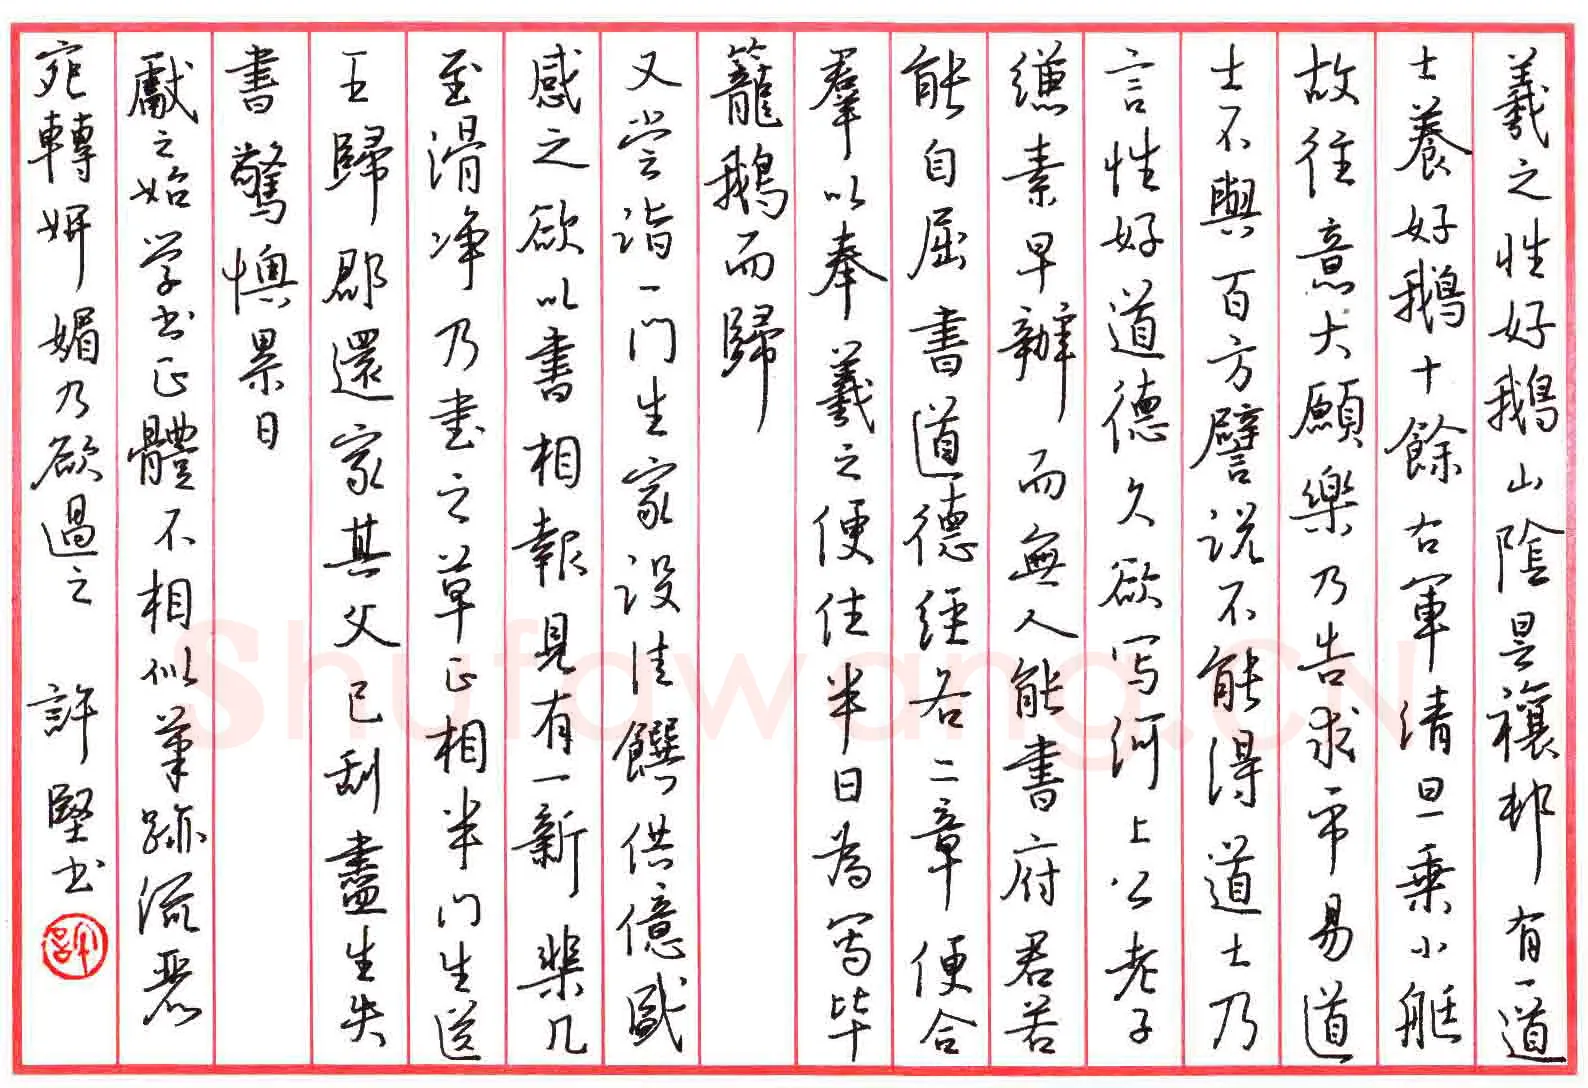 羲之性好鵝山陰曇禳邨有一道
士養好鵝十餘右軍清旦乗小艇
故往意大願樂乃告求市易道
士不與百方譬説不能得道士乃
言性好道德久欲写河上公老子
縑素早辦而無人能書府君若
能自屈書道德經各二章便合
羣以奉羲之便住半日為寫毕
籠鵝而歸
又尝詣一門生家设佳饌供億盛
感之欲以書相報見有一新棐几
至滑净乃書之草正相半門生送
王歸郡還家其父已刮盡生失
書驚懊累日
獻之始学书正體不相似筆跡流恣
宛轉妍媚乃欲過之 許堅书
Shufawang.CN